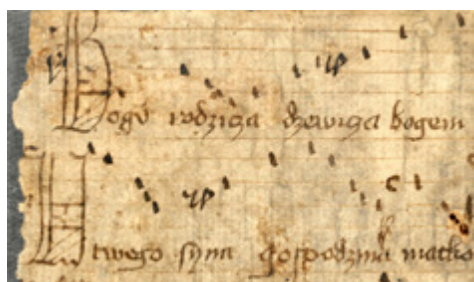 Bogv rodzicza dzewicza bogem
U twego syna gospodzina matko